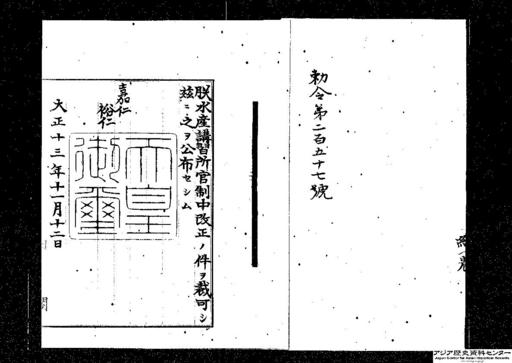 勅令第二百五十七號
朕水産講習所官制中改正ノ件ヲ裁可シ
玆ニ之ヲ公布セシム
嘉仁
裕仁
天皇
御璽
大正十三年十一月十二日
アジア歴史資料センター
Japan Center for Asian Historical Records